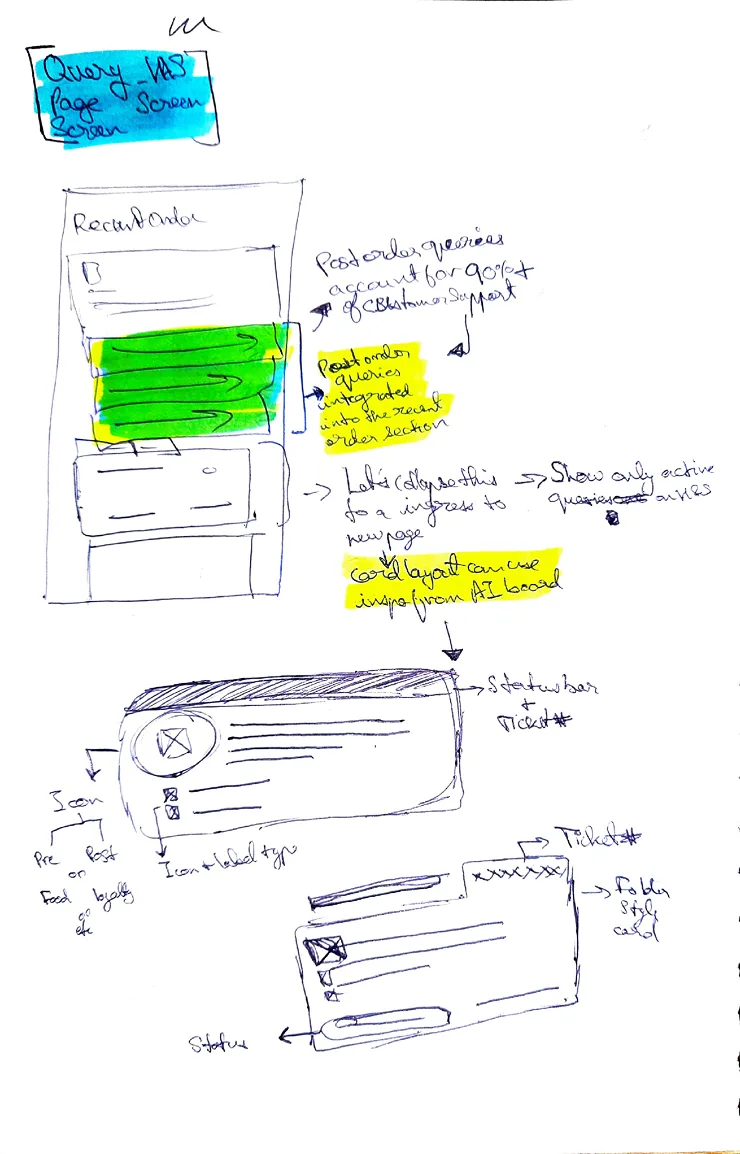 Query_VAS
Page Screen
Screen
Recent Order
Post order queries
account for 90%+
of Customer Support
Post order
queries
integrated
into the recent
order section
Let's collapse this
to a ingress to
new page
Show only active
queries on
card layout can use
inspo from AI board
Status bar
+
Ticket#
Icon
Pre Post
or
Food loyalty
or
etc
Icon + label type
Ticket#
xxxxxxx
Folder
style
card
Status